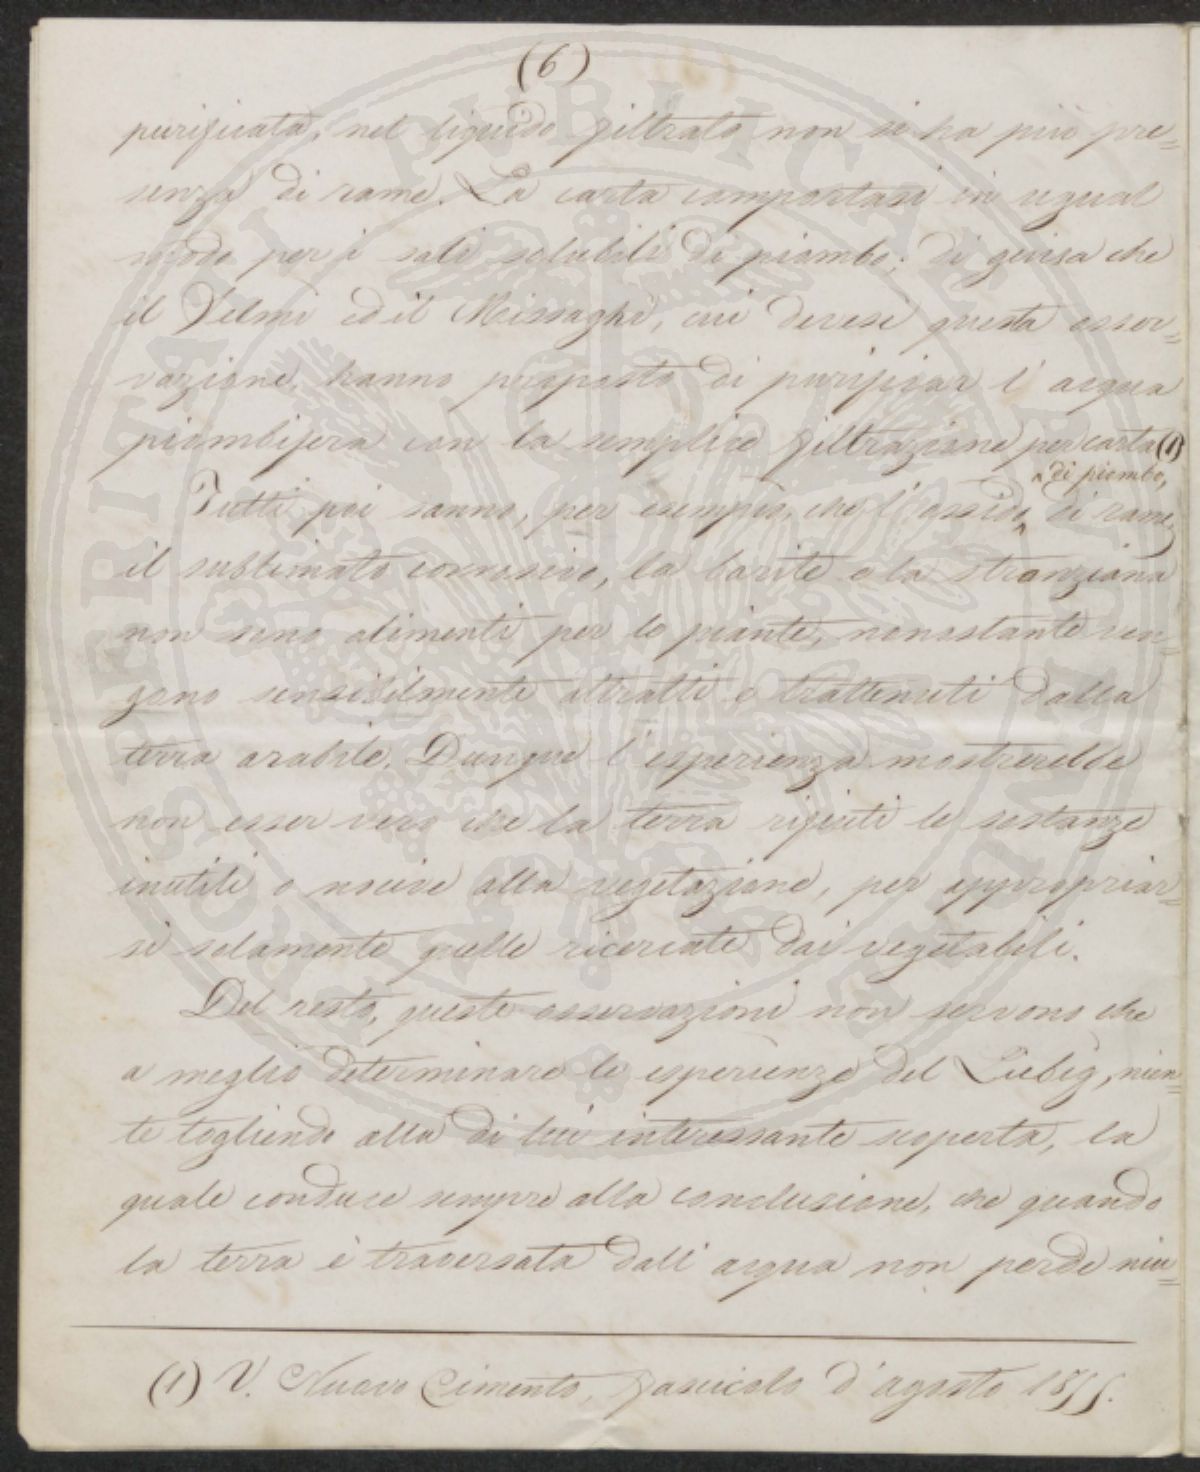 (6)
purificata, nel liquido filtrato non si ha più pre=
senza di rame. La carta comportasi in ugual
modo per i sali solubili di piombo; di guisa che
il Selmi ed il Missaghi, cui devesi questa osser=
vazione, hanno proposto di purificar l'acqua
piombifera con la semplice filtrazione per carta (1)
di piombo,
Tutti poi sanno, per esempio, che l'ossido di rame,
il sublimato corrosivo, la barite e la stronziana
non sono alimenti per le piante, nonostante ven=
gono sensibilmente attratti e trattenuti dalla
terra arabile. Dunque l'esperienza mostrerebbe
non esser vero che la terra rifiuti le sostanze
inutili o nocive alla vegetazione, per appropriar=
si solamente quelle ricercate dai vegetabili.
Del resto, queste osservazioni non servono che
a meglio determinare le esperienze del Liebig, nien=
te togliendo alla di lui interessante scoperta, la
quale conduce sempre alla conclusione, che quando
la terra è traversata dall'acqua non perde niu=
(1) V. Nuovo Cimento, fascicolo d'agosto 1855.